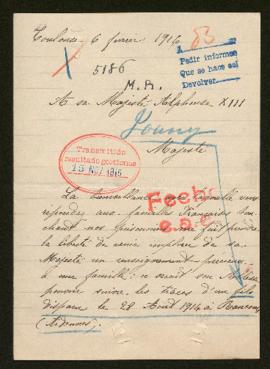 Toulouse - 6 février 1916
A 83
Pedir informes
Que se hace así
Devolver.
5186
M.R.
A sa Majesté Alphonse XIII
Majesté
Transmitido
resultado gestiones
15 NOV 1916
La bienveillance avec laquelle vous
répondez aux familles françaises
nos prisonniers me fait prendre
la liberté de venir implorer de sa
Majesté un renseignement précieux
à une famille: ce serait
pouvoir suivre les traces d'un fils
disparu le 28 Août 1914 à Raucourt
(Ardennes).